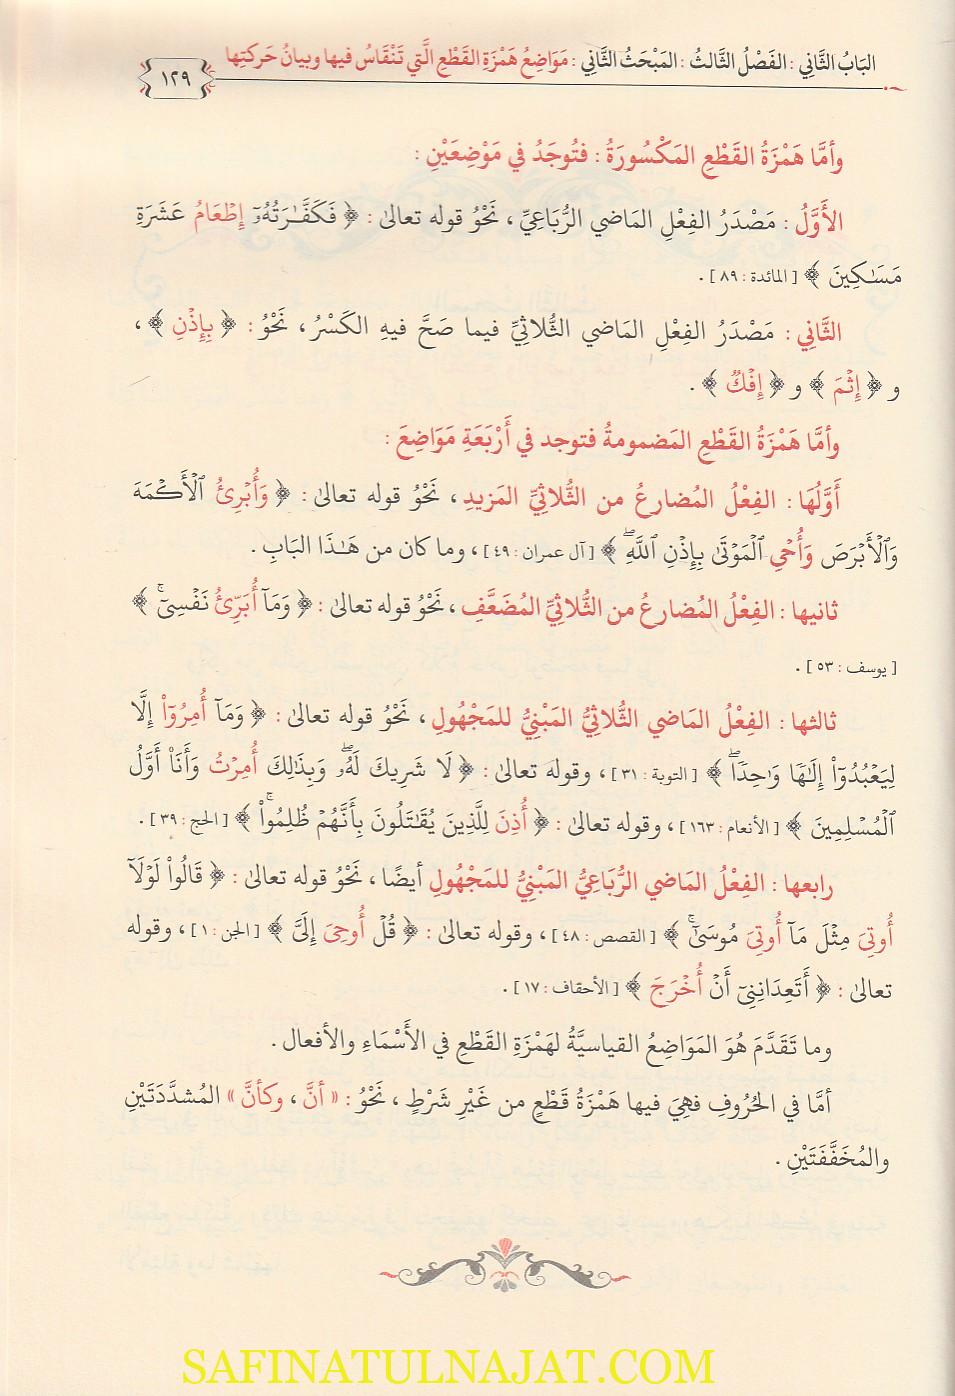 البَابُ الثَّانِي : الفَصْلُ الثَّالثُ : المَبْحَثُ الثَّانِي : مَوَاضِعُ هَمْزَةِ القَطْعِ الَّتِي تَنْقَاسُ فيها وبيانُ حَرَكتِها
١٢٩
وأمَّا هَمْزَةُ القَطْعِ المَكْسُورَةُ : فتُوجَدُ في مَوْضِعَيْنِ :
الأَوَّلُ : مَصْدَرُ الفِعْلِ المَاضي الرُّبَاعِيِّ ، نَحْوُ قوله تعالىٰ : ﴿ فَكَفَّـٰرَتُهُۥٓ إِطْعَامُ عَشَرَةِ
مَسَـٰكِينَ ﴾ [المائدة : ٨٩] .
الثَّانِي : مَصْدَرُ الفِعْلِ المَاضي الثُّلاثيِّ فيما صَحَّ فيهِ الكَسْرُ ، نَحْوُ : ﴿ بِإِذْنِ ﴾ ،
و ﴿ إِثْمَ ﴾ و ﴿ إِفْكٌ ﴾ .
وأمَّا هَمْزَةُ القَطْعِ المَضمومةُ فتوجد في أَرْبَعَةِ مَوَاضِعَ :
أَوَّلُهَا : الفِعْلُ المُضارعُ من الثُّلاثيِّ المَزيدِ ، نَحْوُ قوله تعالىٰ : ﴿ وَأُبْرِئُ ٱلْأَكْمَهَ
وَٱلْأَبْرَصَ وَأُحْيِ ٱلْمَوْتَىٰ بِإِذْنِ ٱللَّهِۖ ﴾ [آل عمران : ٤٩] ، وما كان من هَـٰذَا البَابِ .
ثانيها : الفِعْلُ المُضارعُ من الثُّلاثيِّ المُضَعَّفِ ، نَحْوُ قوله تعالىٰ : ﴿ وَمَآ أُبَرِّئُ نَفْسِىٓۚ ﴾
[يوسف : ٥٣] .
ثالثها : الفِعْلُ المَاضي الثُّلاثيُّ المَبْنِيُّ للمَجْهُولِ ، نَحْوُ قوله تعالىٰ : ﴿ وَمَآ أُمِرُوٓا۟ إِلَّا
لِيَعْبُدُوٓا۟ إِلَـٰهًا وَٰحِدًاۖ ﴾ [التوبة : ٣١] ، وقوله تعالىٰ : ﴿ لَا شَرِيكَ لَهُۥۖ وَبِذَٰلِكَ أُمِرْتُ وَأَنَا۠ أَوَّلُ
ٱلْمُسْلِمِينَ ﴾ [الأنعام : ١٦٣] ، وقوله تعالىٰ : ﴿ أُذِنَ لِلَّذِينَ يُقَـٰتَلُونَ بِأَنَّهُمْ ظُلِمُوا۟ۚ ﴾ [الحج : ٣٩] .
رابعها : الفِعْلُ المَاضي الرُّبَاعِيُّ المَبْنِيُّ للمَجْهُولِ أيضًا ، نَحْوُ قوله تعالىٰ : ﴿ قَالُوا۟ لَوْلَآ
أُوتِىَ مِثْلَ مَآ أُوتِىَ مُوسَىٰٓۚ ﴾ [القصص : ٤٨] ، وقوله تعالىٰ : ﴿ قُلْ أُوحِىَ إِلَىَّ ﴾ [الجن : ١] ، وقوله
تعالىٰ : ﴿ أَتَعِدَانِنِىٓ أَنْ أُخْرَجَ ﴾ [الأحقاف : ١٧] .
وما تَقَدَّمَ هُوَ المَوَاضِعُ القياسيَّةُ لهَمْزَةِ القَطْعِ في الأَسْمَاءِ والأفعال .
أمَّا في الحُرُوفِ فهِيَ فيها هَمْزَةُ قَطْعٍ من غَيْرِ شَرْطٍ ، نَحْوُ : « أنَّ ، وكأنَّ » المُشدَّدَتَيْنِ
والمُخَفَّفَتَيْنِ .
SAFINATULNAJAT.COM